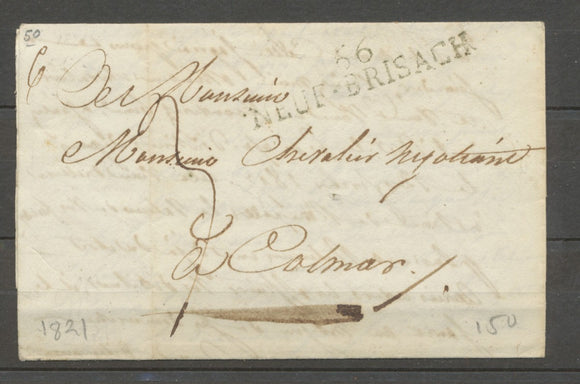 50
66
NEUF-BRISACH
A Monsieur
Monsieur Chevalier négotiant
à Colmar.
1821
150